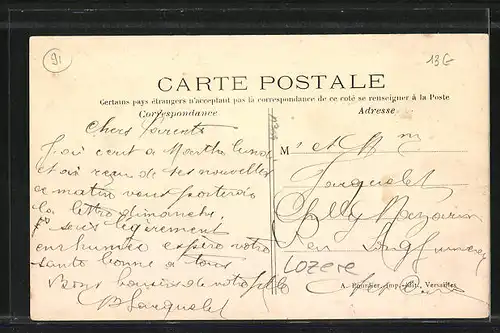 91
13G
CARTE POSTALE
Certains pays étrangers n'acceptant pas la correspondance de ce coté se renseigner à la Poste
Correspondance
Adresse
Chers Parents
J'ai écrit a Marthe lundi
et ai reçu de ses nouvelles
ce matin vous porterais
la lettre dimanche.
Je suis légèrement
enrhumée espère votre
santé bonne a tous
Bons baisers de votre fille
M r et M m
Chilly Mazarin
par Longjumeau
LOZERE
A. Bourdier, imp.-édit., Versailles